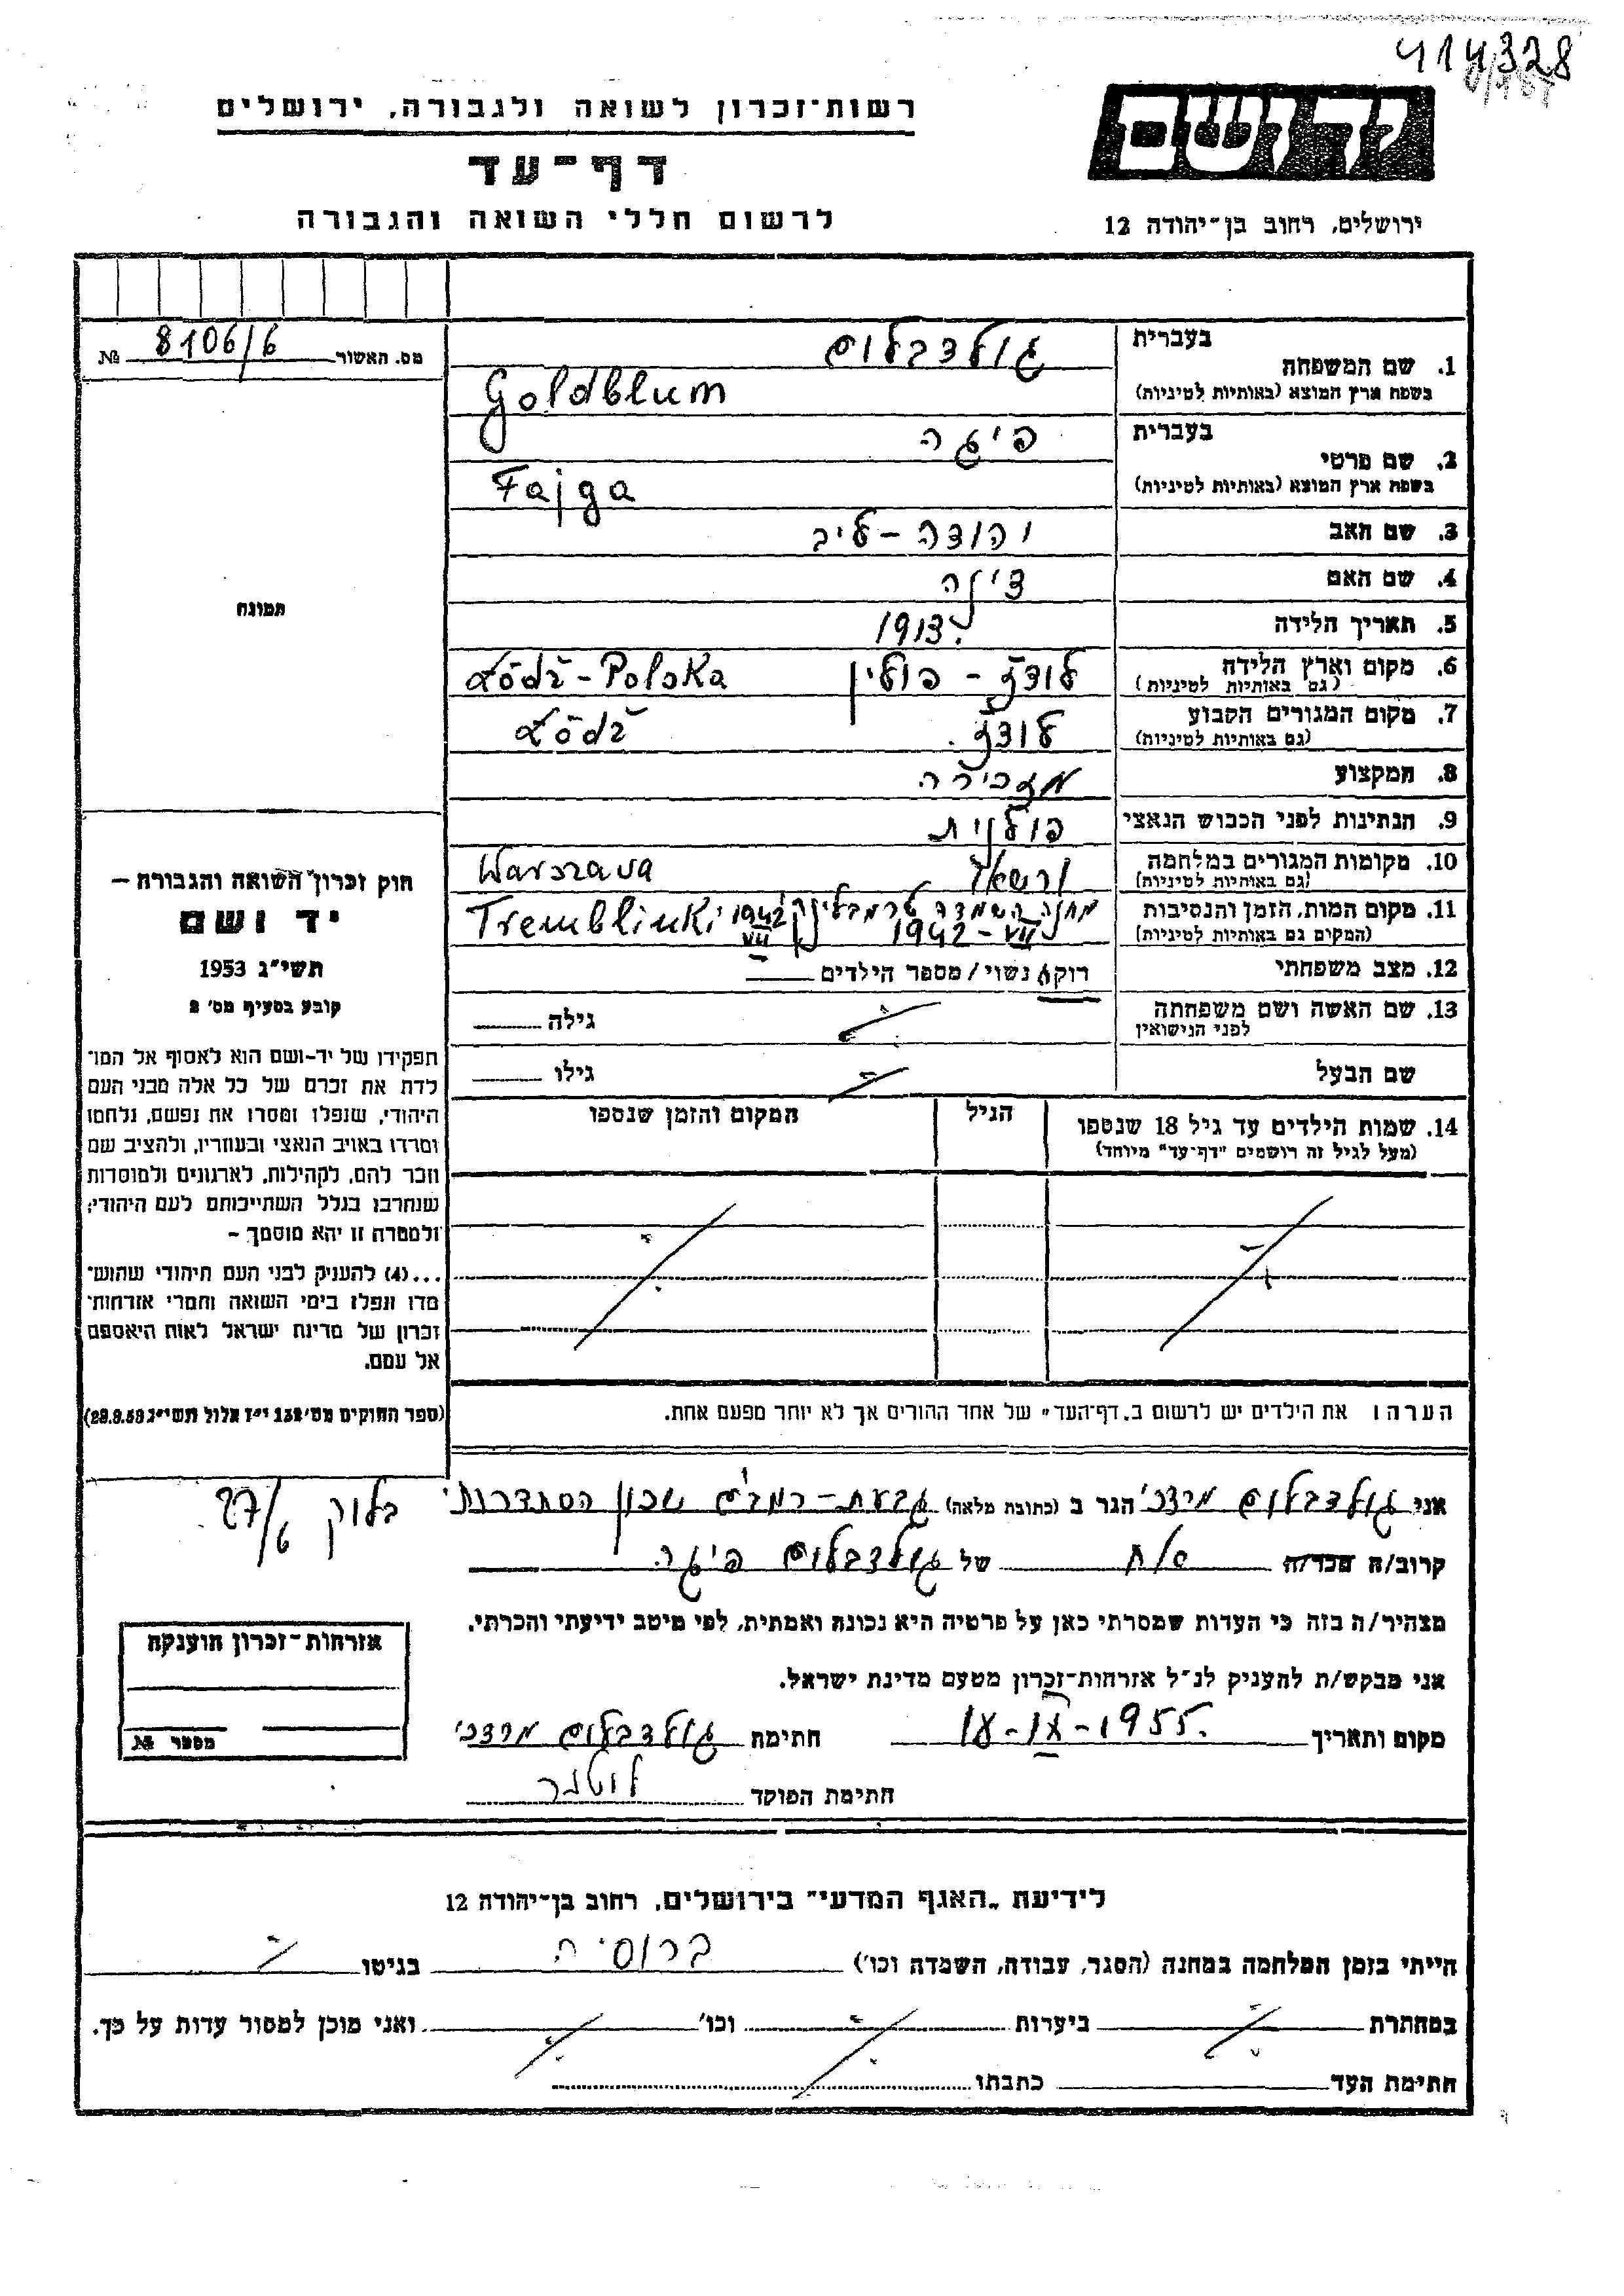 414328
רשות-זכרון לשואה ולגבורה, ירושלים
דף-עד
לרשום חללי השואה והגבורה
יד ושם
ירושלים, רחוב בן-יהודה 12
מס. האשור 8106/6 №
בעברית גולדבלום
1. שם המשפחה
בשפת ארץ המוצא (באותיות לטיניות) Goldblum
בעברית פיגה
2. שם פרטי
בשפת ארץ המוצא (באותיות לטיניות) Fajga
3. שם האב יהודה - ליב
4. שם האם
5. תאריך הלידה 1913.
6. מקום וארץ הלידה לודז - פולין Łódź - Polska
(גם באותיות לטיניות)
7. מקום המגורים הקבוע לודז. Łódź
(גם באותיות לטיניות)
8. המקצוע מזכירה
9. הנתינות לפני הכבוש הנאצי פולנית
10. מקומות המגורים במלחמה ורשא Warszava
(גם באותיות לטיניות)
11. מקום המות, הזמן והנסיבות מחנה השמדה טרמבלינקי 1942 VII Tremblinki
(המקום גם באותיות לטיניות) 1942 - VII
12. מצב משפחתי רווק/ נשוי/ מספר הילדים
13. שם האשה ושם משפחתה גילה
לפני הנישואין
שם הבעל גילו
14. שמות הילדים עד גיל 18 שנספו הגיל המקום והזמן שנספו
(מעל לגיל זה רושמים "דף-עד" מיוחד)
תמונה
חוק זכרון השואה והגבורה –
יד ושם
תשי"ג 1953
קובע בסעיף מס' 2
תפקידו של יד-ושם הוא לאסוף אל המו־
לדת את זכרם של כל אלה מבני העם
היהודי, שנפלו ומסרו את נפשם, נלחמו
ומרדו באויב הנאצי ובעוזריו, ולהציב שם
וזכר להם, לקהילות, לארגונים ולמוסדות
שנחרבו בגלל השתייכותם לעם היהודי;
ולמטרה זו יהא מוסמך –
...(4) להעניק לבני העם היהודי שהוש־
מדו ונפלו בימי השואה והמרי אזרחות־
זכרון של מדינת ישראל לאות היאספם
אל עמם.
(ספר החוקים מס' 132 י"ז אלול תשי"ג 28.8.53)
הערה: את הילדים יש לרשום ב„דף-העד" של אחד ההורים אך לא יותר מפעם אחת.
אני גולדבלום מרדכי הגר ב (כתובת מלאה) גבעת - רמב"ם שכון הסתדרותי
בלוק 27/6
קרוב/ה מכר/ה אח של גולדבלום פיגה.
מצהיר/ה בזה כי העדות שמסרתי כאן על פרטיה היא נכונה ואמתית, לפי מיטב ידיעתי והכרתי.
אני מבקש/ת להעניק לנ"ל אזרחות-זכרון מטעם מדינת ישראל.
מקום ותאריך 18-IX-1955. חתימת גולדבלום מרדכי
חתימת הפוקד
אזרחות-זכרון הוענקה
מספר №
לידיעת „האגף המדעי" בירושלים, רחוב בן-יהודה 12
הייתי בזמן המלחמה במחנה (הסגר, עבודה, השמדה וכו') ברוסיה בגיטו
במחתרת ביערות וכו' ואני מוכן למסור עדות על כך.
חתימת העד כתבתו